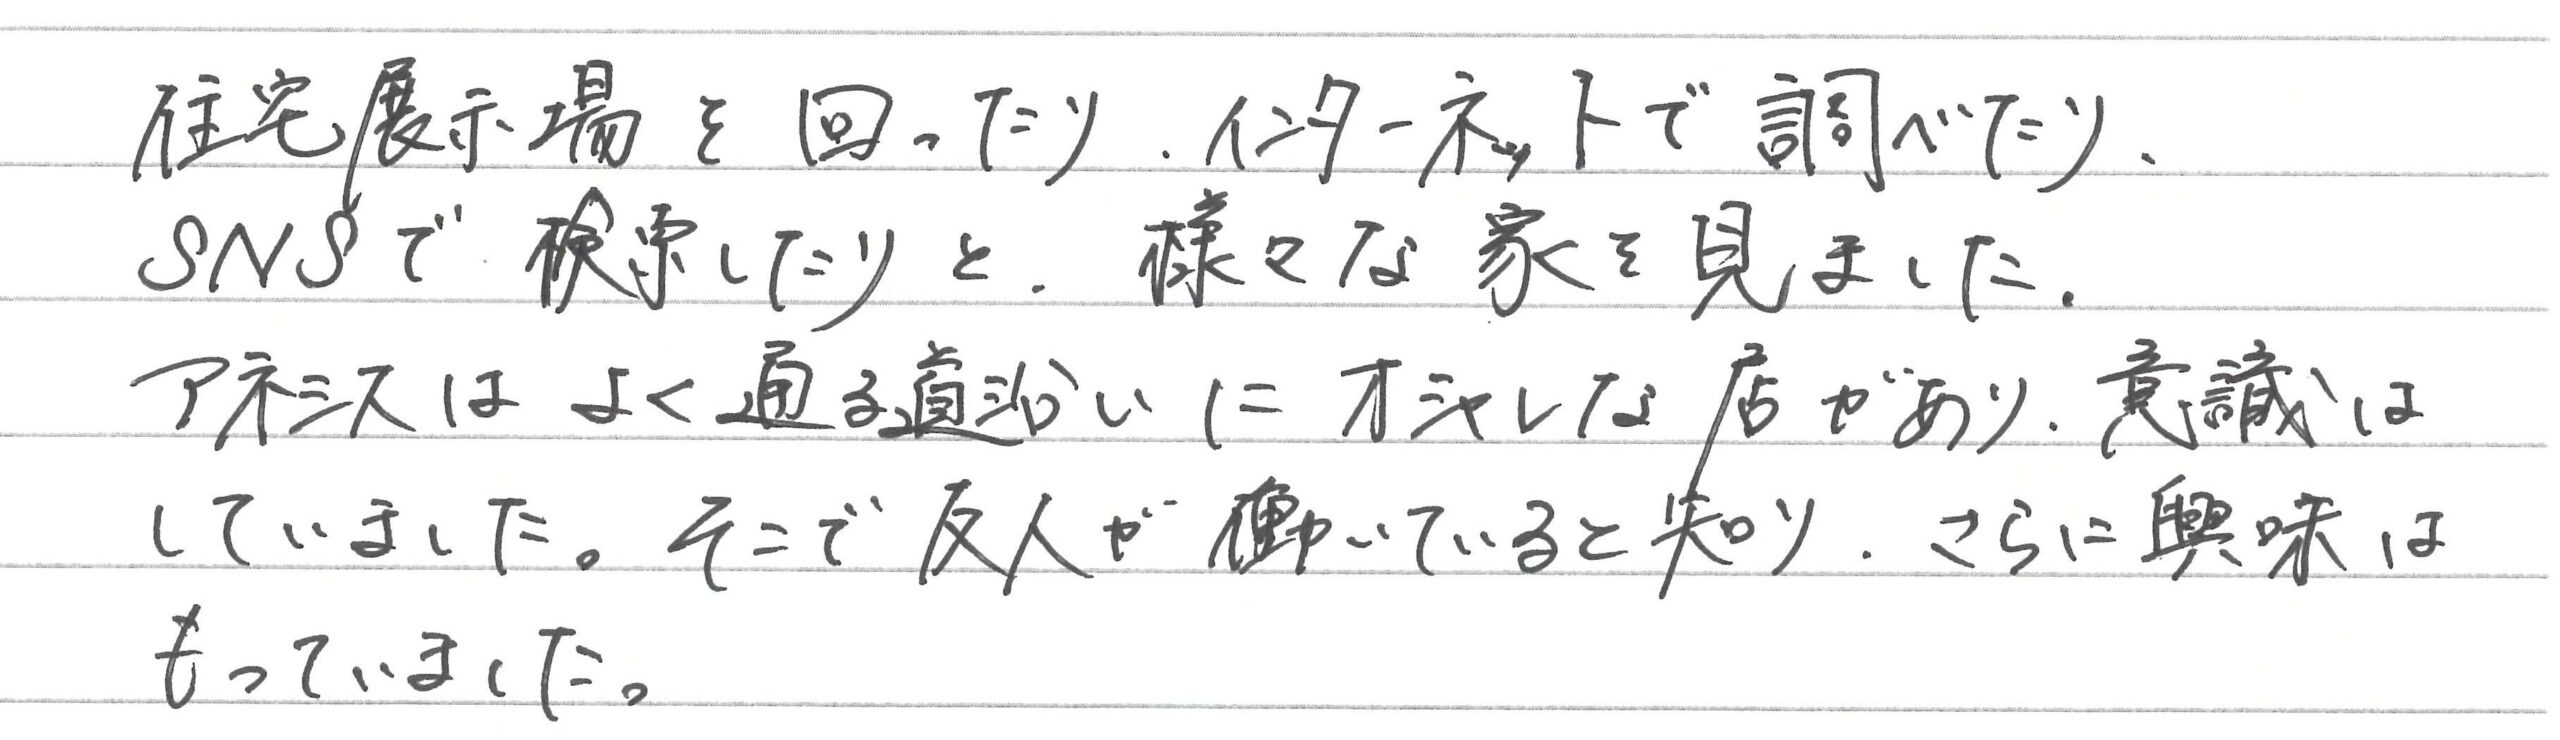 住宅展示場を回ったり、インターネットで調べたり、
SNSで検索したりと、様々な家を見ました。
アネシスはよく通る道沿いにオシャレな店があり、意識は
していました。そこで友人が働いていると知り、さらに興味は
もっていました。